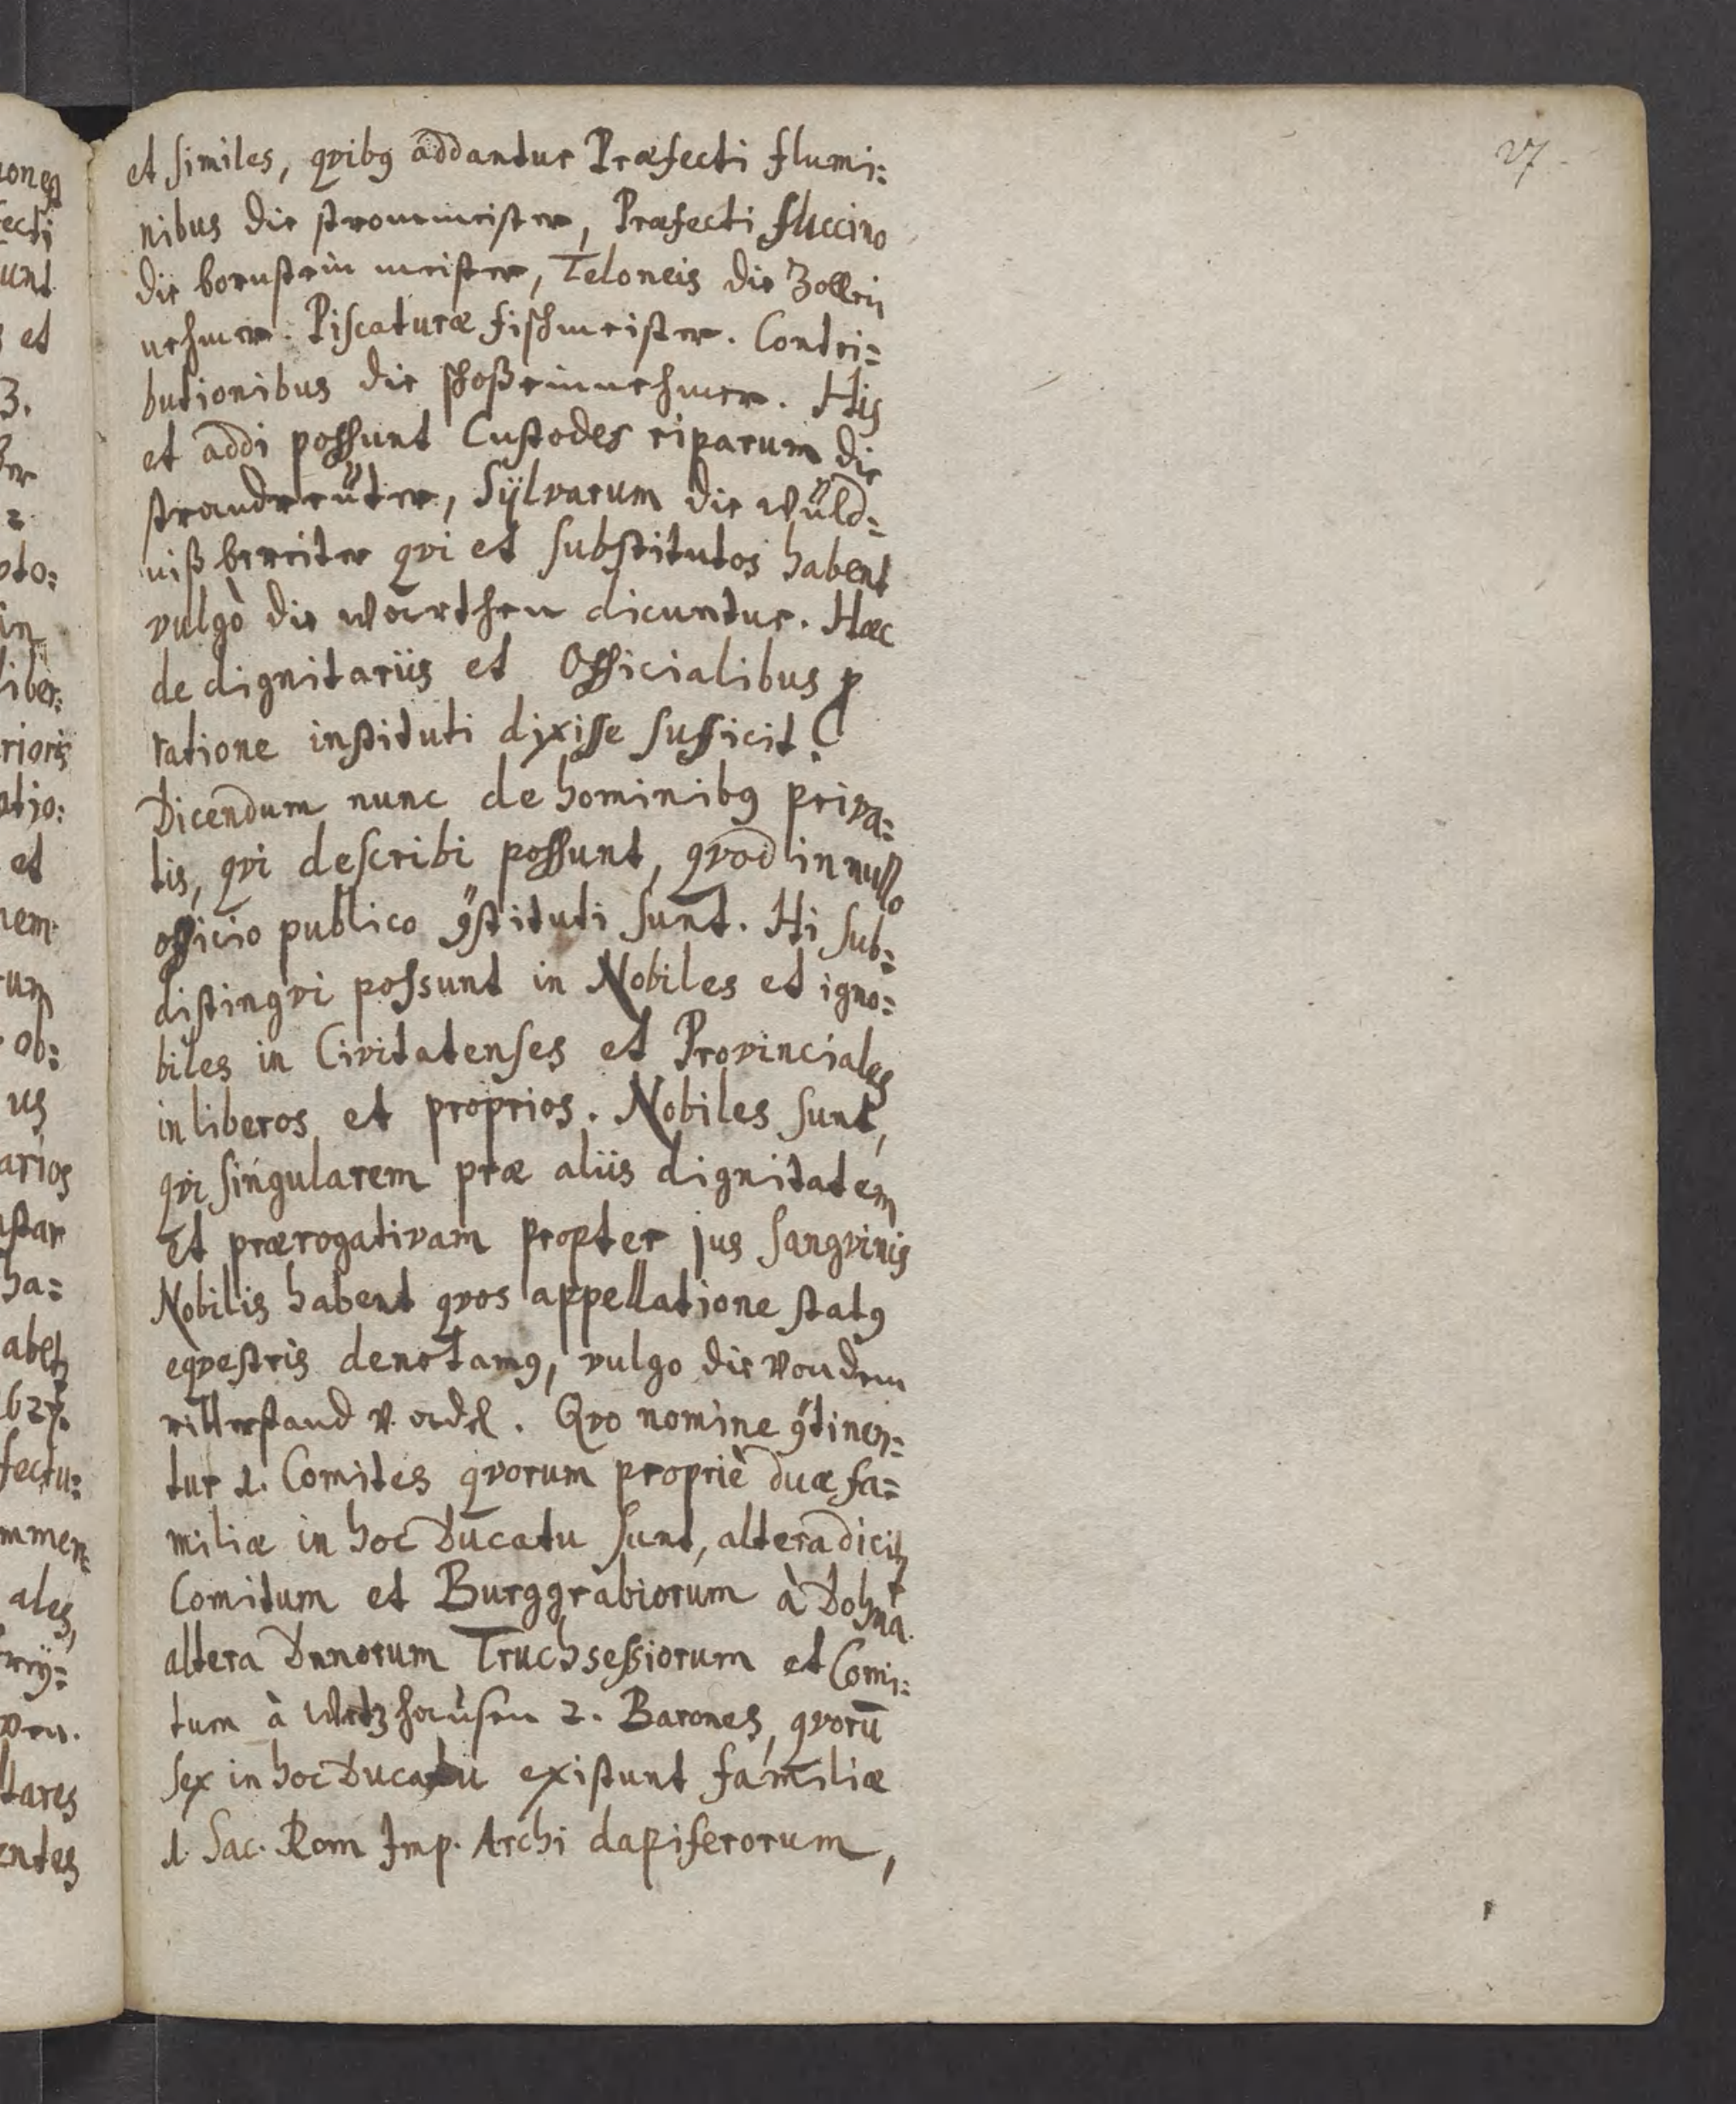 27
et similes, qvibꝰ addantur Præfecti flumi=
nibus die strommeister, Præfecti succino
die bornstein meister, Teloneis die Zollein
nehmer. Piscaturæ fischmeister. Contri=
butionibus die schoßeinnehmer. His
et addi possunt Custodes riparum die
strandreüter, Sÿlvarum die wüld=
nißbereiter qvi et substitutos habent
vulgò die warthen dicuntur. Hæc
de dignitariis et Officialibus ꝓ
ratione instituti dixisse sufficit.
Dicendum nunc de hominibꝰ priva=
tis, qvi describi possunt, qvod in nullo
officio publico ꝯstituti sunt. Hi sub=
distingvi possunt in Nobiles et igno=
biles in Civitatenses et Provinciales
in liberos et proprios. Nobiles sunt,
qvi singularem præ aliis dignitatem
Et prærogativam propter jus sangvinis
Nobilis habent qvos appellatione statꝰ
eqvestris denotamꝰ, vulgo die von dem
ritterstand v. adel. Qvo nomine ꝯtinen=
tur 1. Comites qvorum propriè duæ fa=
miliæ in hoc Ducatu sunt, altera dicitr
Comitum et Burggrabiorum à Dohna.
altera Dnnorum Truchsessiorum et Comi=
tum à Wetzhaùsen 2. Barones, qvorū
sex in hoc Ducatu existunt familiæ
1. Sac. Rom Imp. Archi dapiferorum,